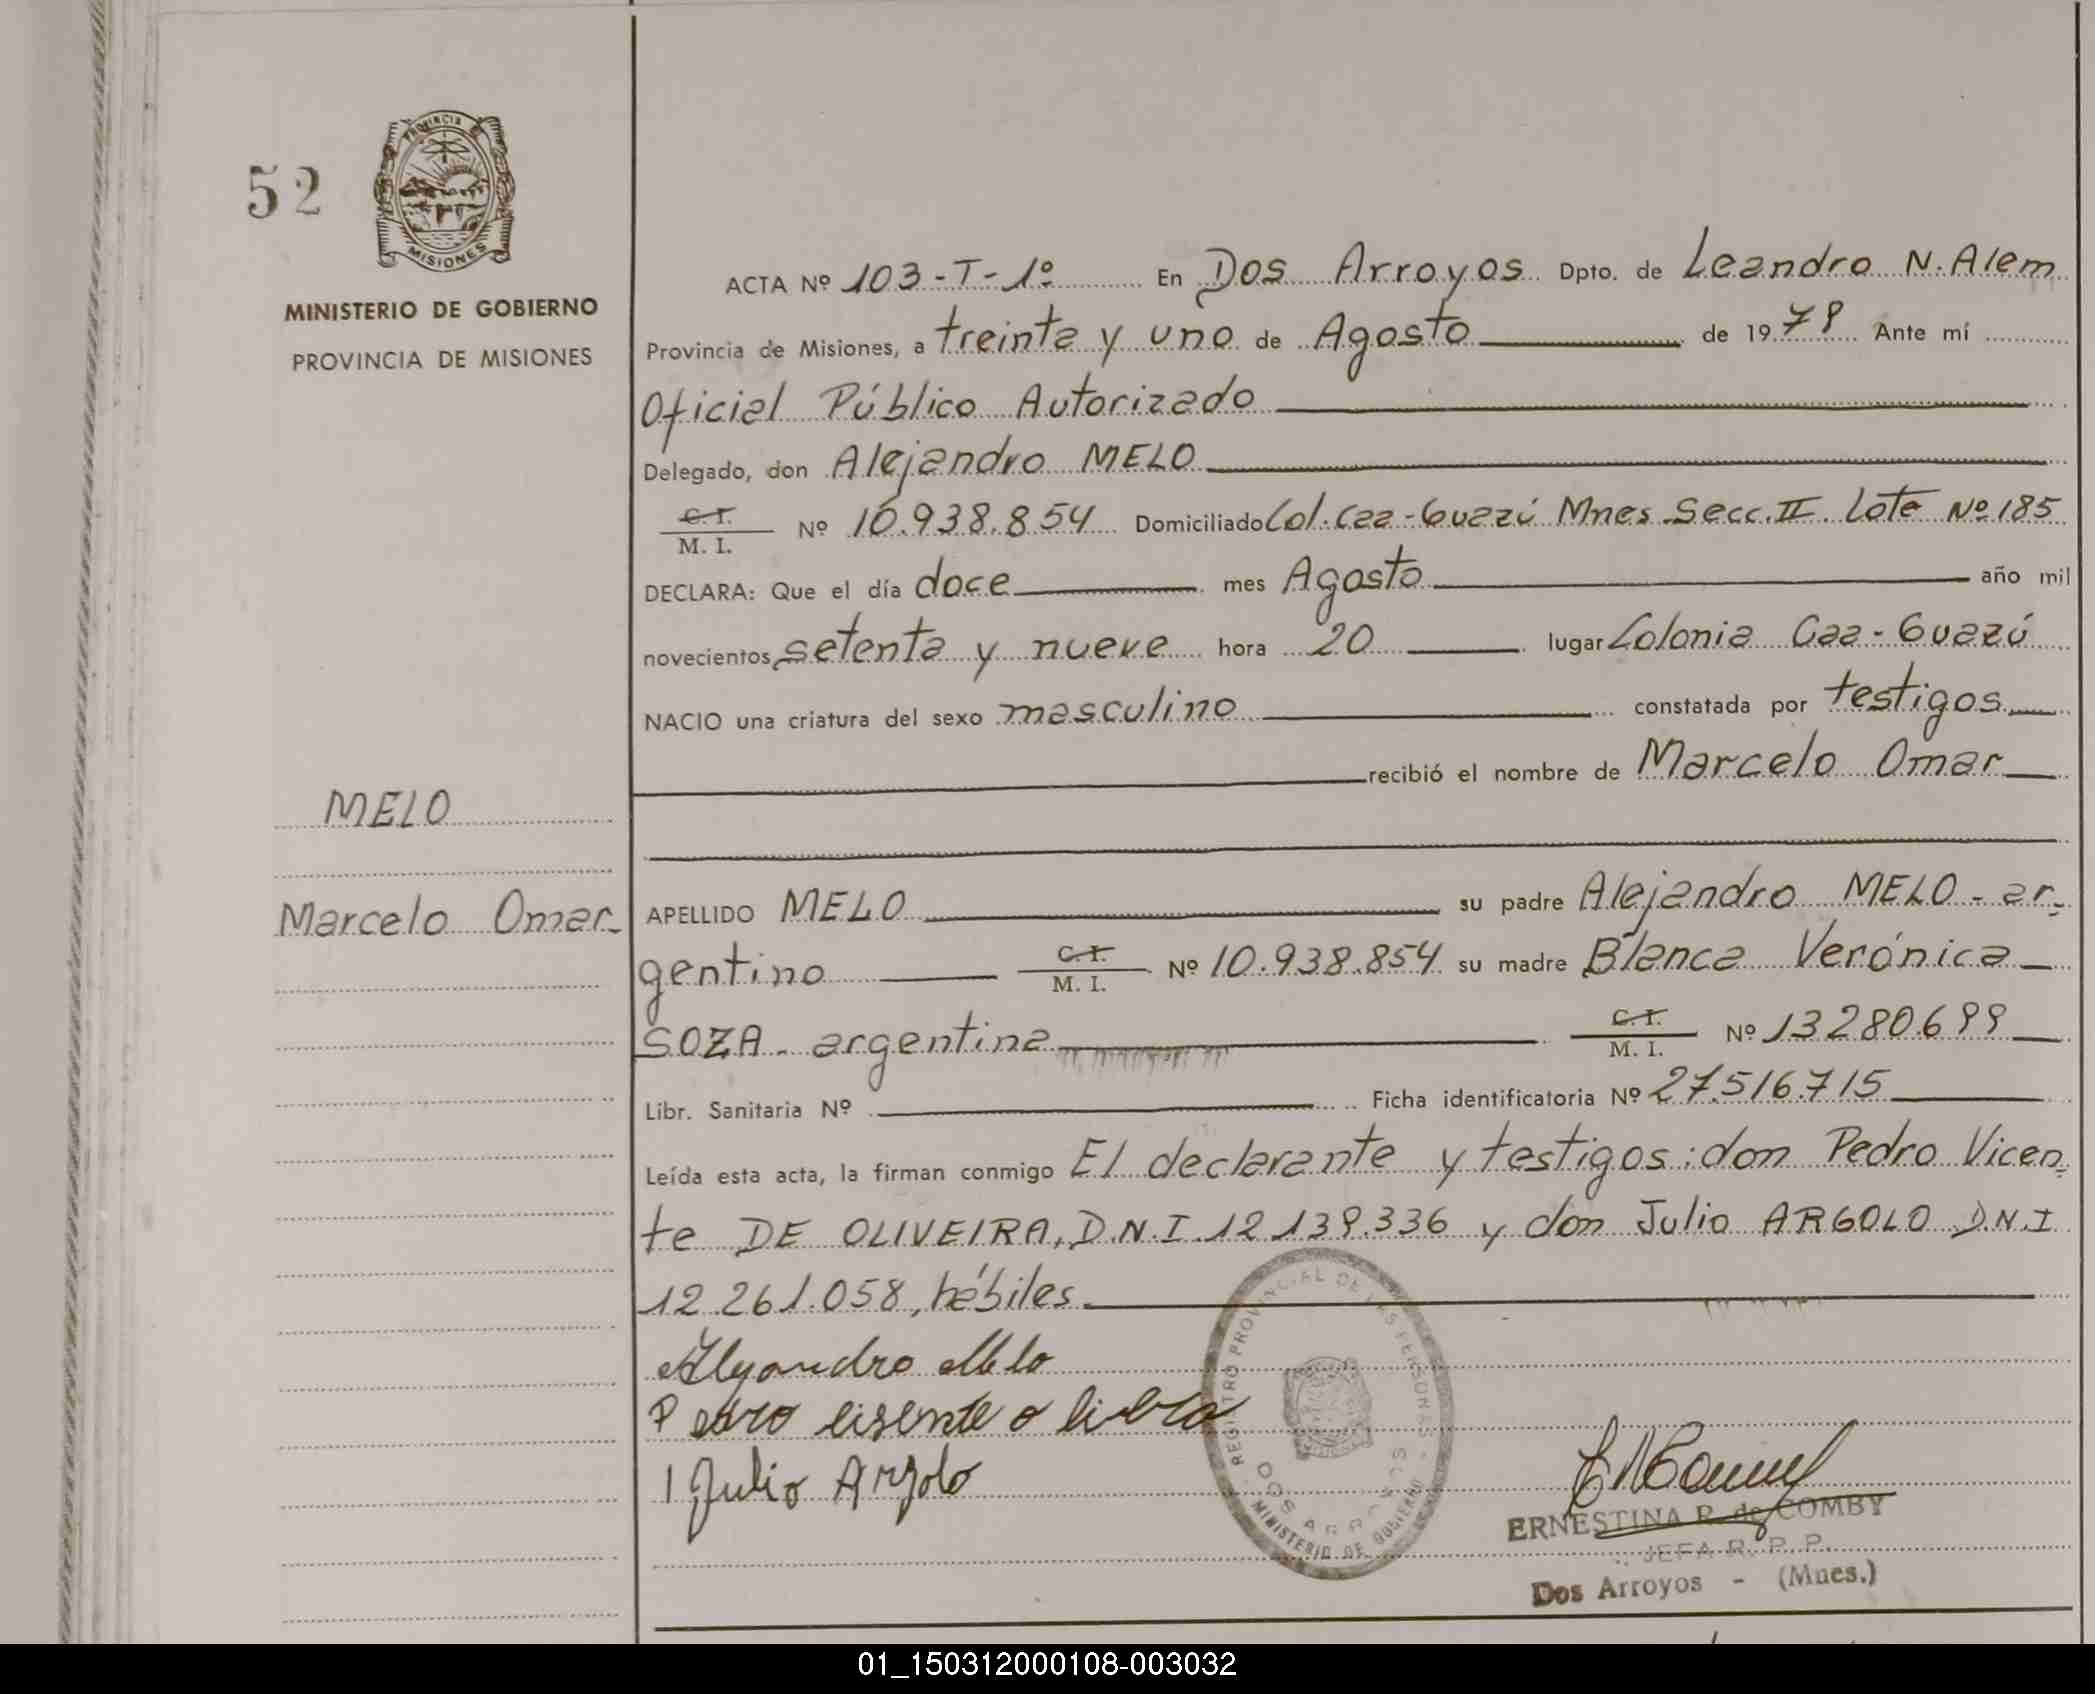 52
PROVINCIA DE
MISIONES
MINISTERIO DE GOBIERNO
PROVINCIA DE MISIONES
MELO
Marcelo Omar.
ACTA Nº 103-T-1º En Dos Arroyos Dpto. de Leandro N. Alem
Provincia de Misiones, a treinta y uno de Agosto de 1979 Ante mí
Oficial Público Autorizado
Delegado, don Alejandro MELO
C.I. M. I. Nº 10.938.854 Domiciliado Col. Caa-Guazú Mnes Secc. II Lote Nº 185
DECLARA: Que el día doce mes Agosto año mil
novecientos setenta y nueve hora 20 lugar Colonia Caa-Guazú
NACIO una criatura del sexo masculino constatada por testigos
recibió el nombre de Marcelo Omar
APELLIDO MELO su padre Alejandro MELO - ar-
gentino C.I. M. I. Nº 10.938.854 su madre Blanca Verónica
SOZA - argentina C.I. M. I. Nº 13280.699
Libr. Sanitaria Nº Ficha identificatoria Nº 27.516.715
Leída esta acta, la firman conmigo El declarante y testigos: don Pedro Vicen-
te DE OLIVEIRA, D.N.I. 12.139.336 y don Julio ARGOLO D.N.I
12.261.058, hábiles.
Alejandro Melo
Pedro lisente o libra
Julio Argolo
REGISTRO PROVINCIAL DE LAS PERSONAS
DOS ARROYOS
MINISTERIO DE GOBIERNO
ERNESTINA R. de COMBY
JEFA R. P. P.
Dos Arroyos - (Mnes.)
01_150312000108-003032